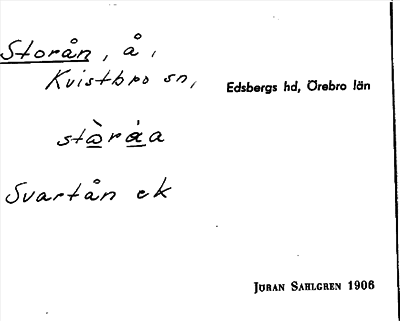 Storån, å,
Kvistbro sn,
Edsbergs hd, Örebro län
stàråa
Svartån ek
JÖRAN SAHLGREN 1906